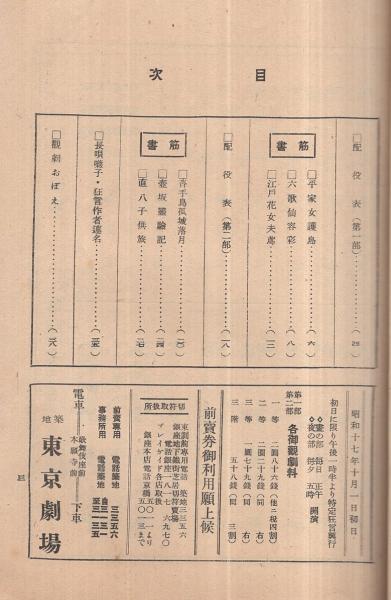 目次
□配役表(第一部)
筋書
□平家女護島
□六歌仙容彩
□江戸花女夫鳶
□配役表(第二部)
筋書
□壺坂靈驗記
□長唄囃子・狂言作者連名
□觀劇おぼえ
昭和十七年十月一日初日
初日に限り午後一時半より特定狂言興行
◇晝の部 毎日 正午
◇夜の部 毎夕 五時
開演
第一部
第二部
各御觀劇料
一等 二圓八十六錢(他ニ税四割)
二等 二圓二十九錢(同 右)
三等 一圓七十九錢(同 右)
三階 五十八錢(同 三割)
前賣券御利用願上候
切符取扱所
東劇前專用電話 築地三三五六
銀座地下鐵街芝居切符賣場
電話銀座一八一七
プレイガイド各店取扱
前賣專用 電話築地 三三五六
事務所用 電話築地
電車
歌舞伎座前
本願寺前
下車
築地
東京劇場
三